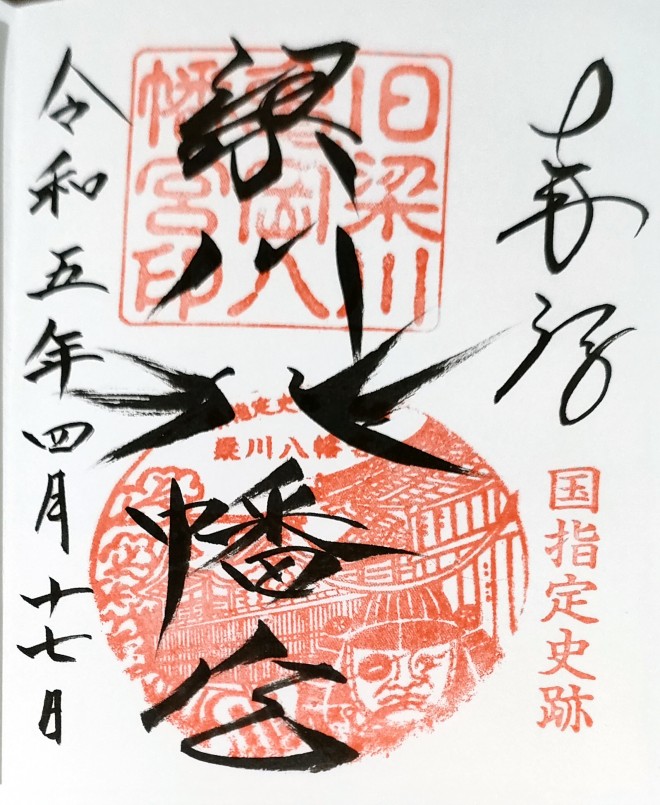 奉拝
国指定史跡
旧梁川
亀岡八
幡宮印
梁川八幡宮
梁川八幡
令和五年四月十七日